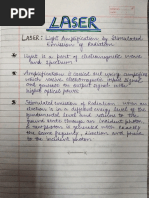 LASER
LASER : Light Amplification by Stimulated
Emission of Radiation
Light is a part of electromagnetic waves
and spectrum
Amplification is carried out using amplifier
which receive electromagnetic input signal
and generate an output signal with
higher optical power
Stimulated emission of Radiation: When an
electron is in a definite energy level of the
fundamental state can
through an incident photon
a new photon is generated with exactly
the same frequency, direction and phase
to the incident photon.